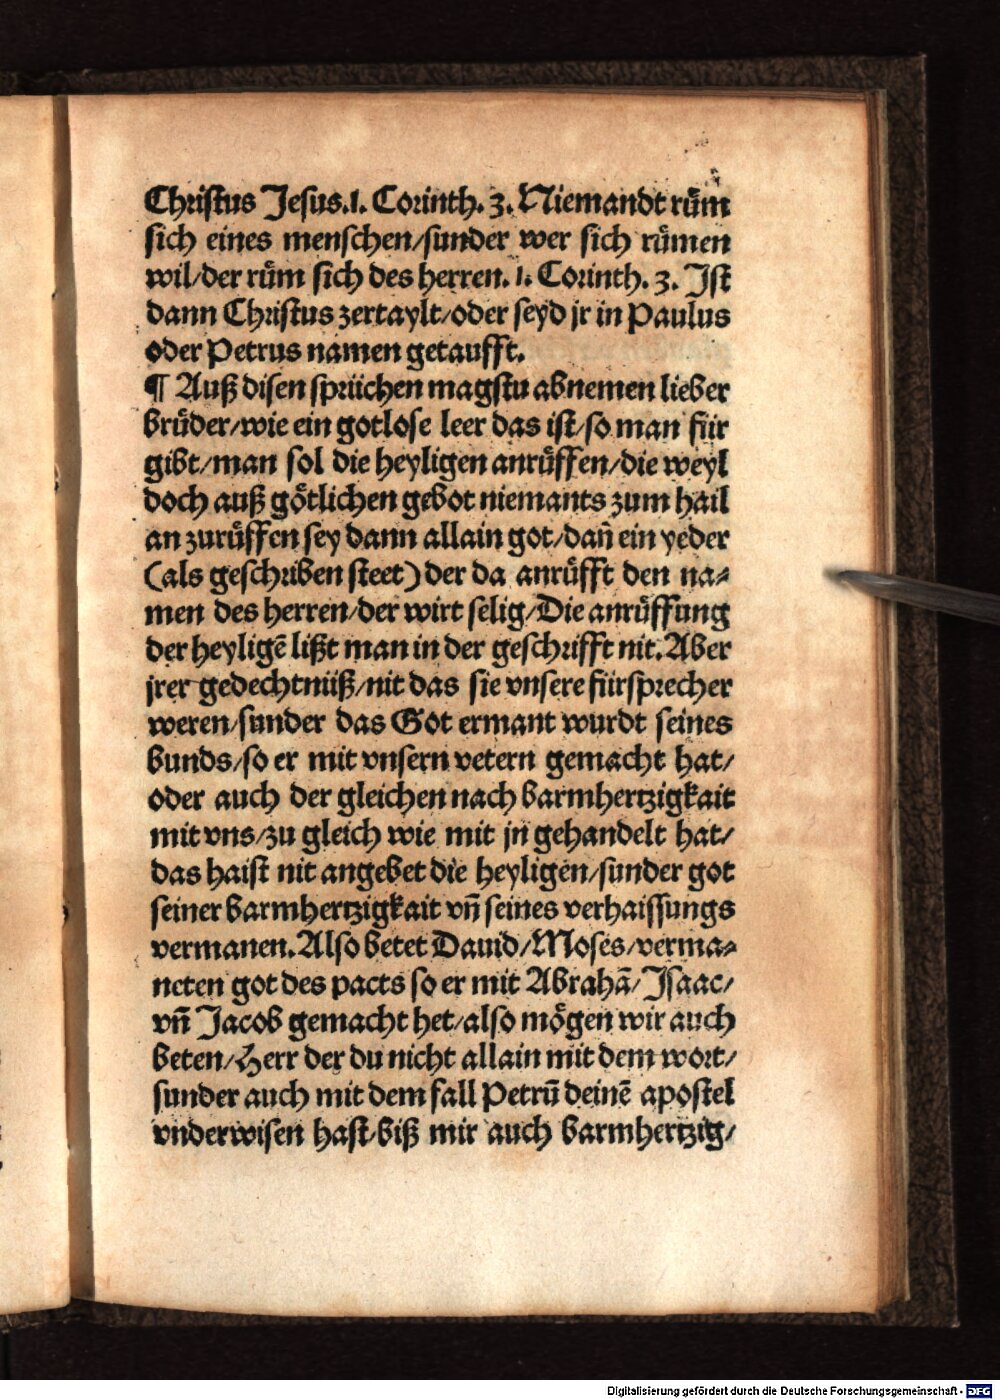 Christus Jesus.1. Corinth. 3. Niemandt rům
sich eines menschen/sunder wer sich růmen
wil/der rům sich des herren. 1. Corinth. 3. Ist
dann Christus zertaylt/oder seyd jr in Paulus
oder Petrus namen getaufft.
¶ Auß disen sprüchen magstu abnemen lieber
brůder/wie ein gotlose leer das ist/so man für
gibt/man sol die heyligen anrůffen/die weyl
doch auß götlichen gebot niemants zum hail
an zurůffen sey dann allain got/dañ ein yeder
(als geschriben steet) der da anrůfft den na⸗
men des herren/der wirt selig/Die anrůffung
der heyligē lißt man in der geschrifft nit. Aber
jrer gedechtnüß/nit das sie vnsere fürsprecher
weren/sunder das Got ermant wurdt seines
bunds/so er mit vnsern vetern gemacht hat/
oder auch der gleichen nach barmhertzigkait
mit vns/zu gleich wie mit jn gehandelt hat/
das haist nit angebet die heyligen/sunder got
seiner barmhertzigkait vñ seines verhaissungs
vermanen. Also betet Dauid/Moses/verma⸗
neten got des pacts so er mit Abrahā/Isaac/
vñ Jacob gemacht het/also mögen wir auch
beten/Herr der du nicht allain mit dem wort/
sunder auch mit dem fall Petrū deinē apostel
vnderwisen hast/biß mir auch barmhertzig/
Digitalisierung gefördert durch die Deutsche Forschungsgemeinschaft - DFG